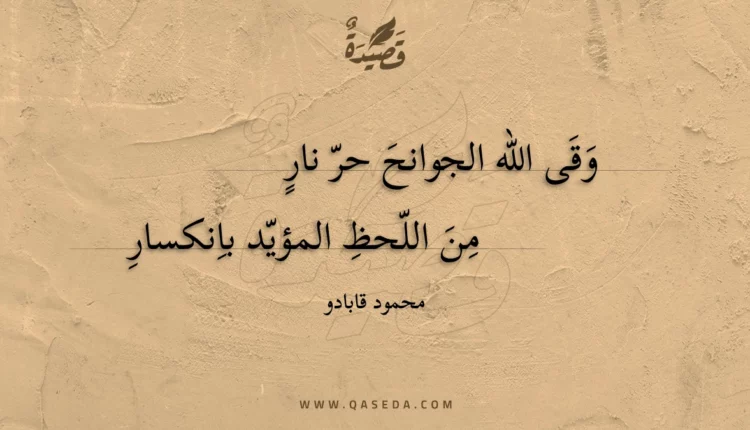 قَصِيدَةٌ
وَقَى الله الجوانحَ حرّ نارٍ
مِنَ اللّحظِ المؤيّد بِاِنكسارِ
محمود قابادو
WWW.QASEDA.COM